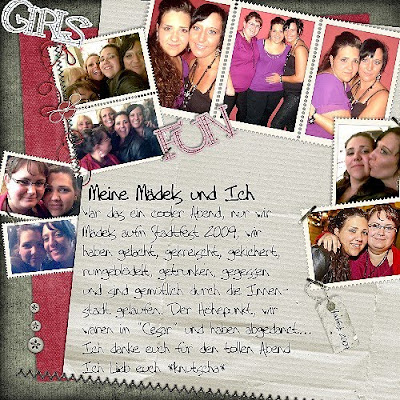 GIRLS
FUN
Meine Mädels und Ich
war das ein cooler Abend, nur wir
Mädels aufm Stadtfest 2009, wir
haben gelacht, gekreischt, gekichert,
rumgeblödelt, getrunken, gegessen
und sind gemütlich durch die Innen-
stadt gelaufen. Der Höhepunkt, wir
waren in "Cesar" und haben abgedanct....
Ich danke euch für den tollen Abend
Ich Lieb euch *knutscha*
2009